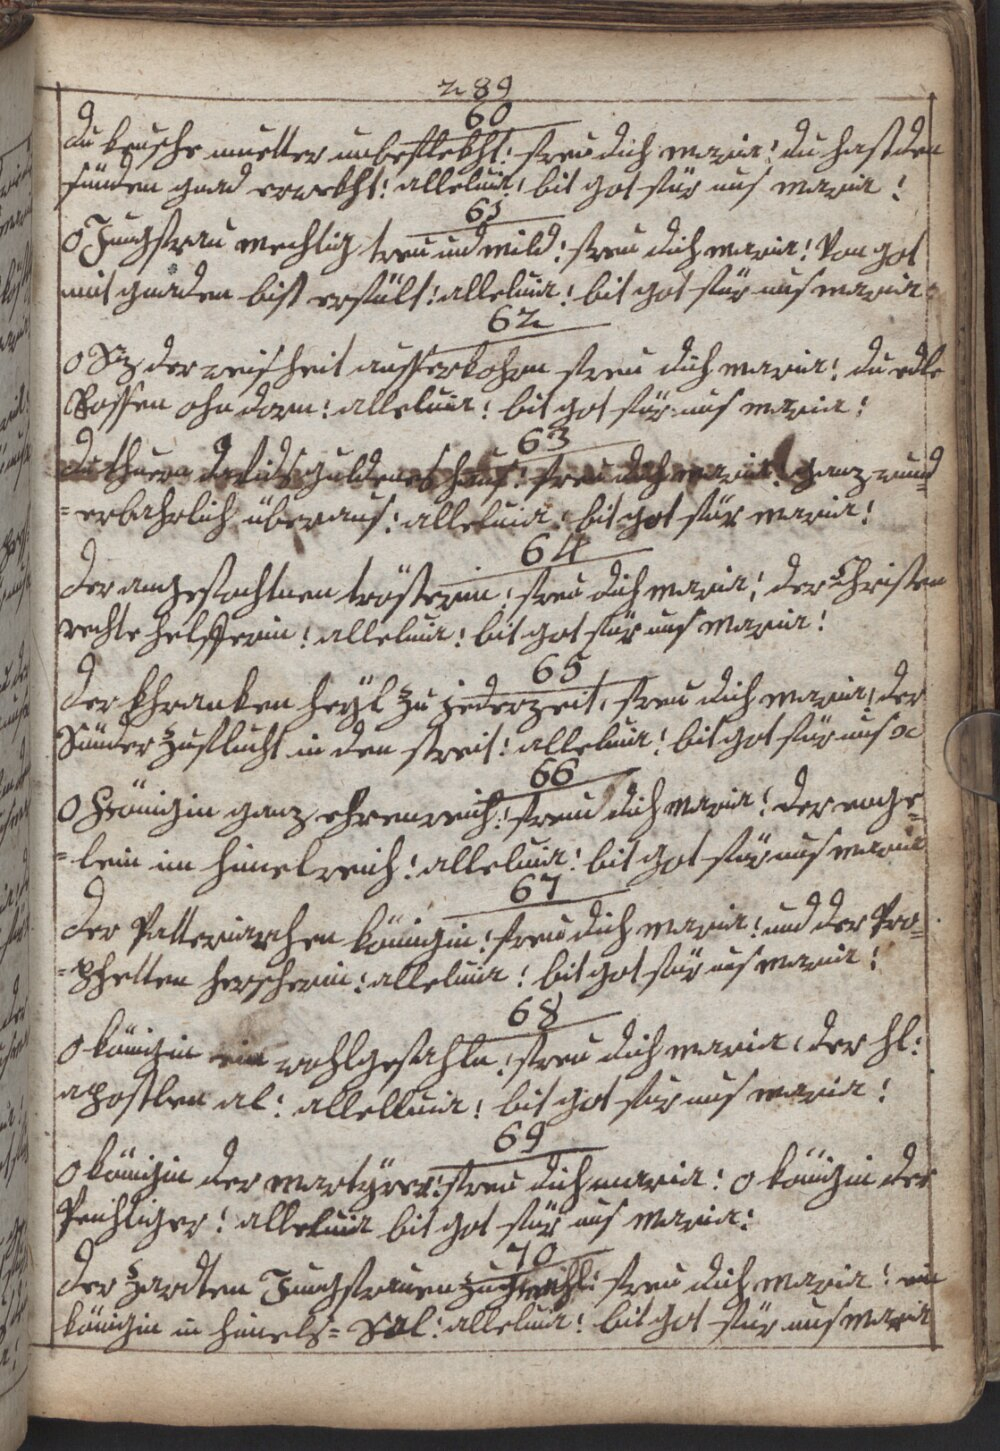 289
60
du keusche muetter unbeflekht: freu dich maria! du hast den
sünden gnad erwekht! alleluia! bit got für uns maria!
61
O Jungfrau mechtig treu und mild! freu dich maria! Von got
mit gnaden bist erfült! alleluia! bit got für uns maria:
62
O Siz der weisheit ausserkohrn freu dich maria! du edle
Rossen ohn dorn: alleluia! bit got für uns maria!
63
du thurn Davids guldenes haus! freu dich maria! ganz wund=
=erbahrlich überaus! alleluia! bit got für maria!
64
der angefochtnen trösterin! freu dich maria! der Christen
rechte helfferin! alleluia! bit got für uns maria!
65
der khranken heyl zu jederzeit, freu dich maria! der
Sünder Zuflucht in den streit! alleluia! bit got für uns
66
O Königin ganz ehrenreich! freu dich maria! der enge=
=lein im himelreich! alleluia! bit got für uns maria
67
der Patteriarchen königin! freu dich maria! und der Pro=
=phetten herscherin! alleluia! bit got für uns maria!
68
O königin ein freu dich maria! der hl:
apostlen al: allelluia! bit got für uns maria!
69
O königin der martÿrer! freu dich maria! o königin der
Peichtiger! alleluia bit got für uns maria:
70
der zardten Jungfrauen freu dich maria! ein
königin in himels= Sal! alleluia! bit got für uns maria